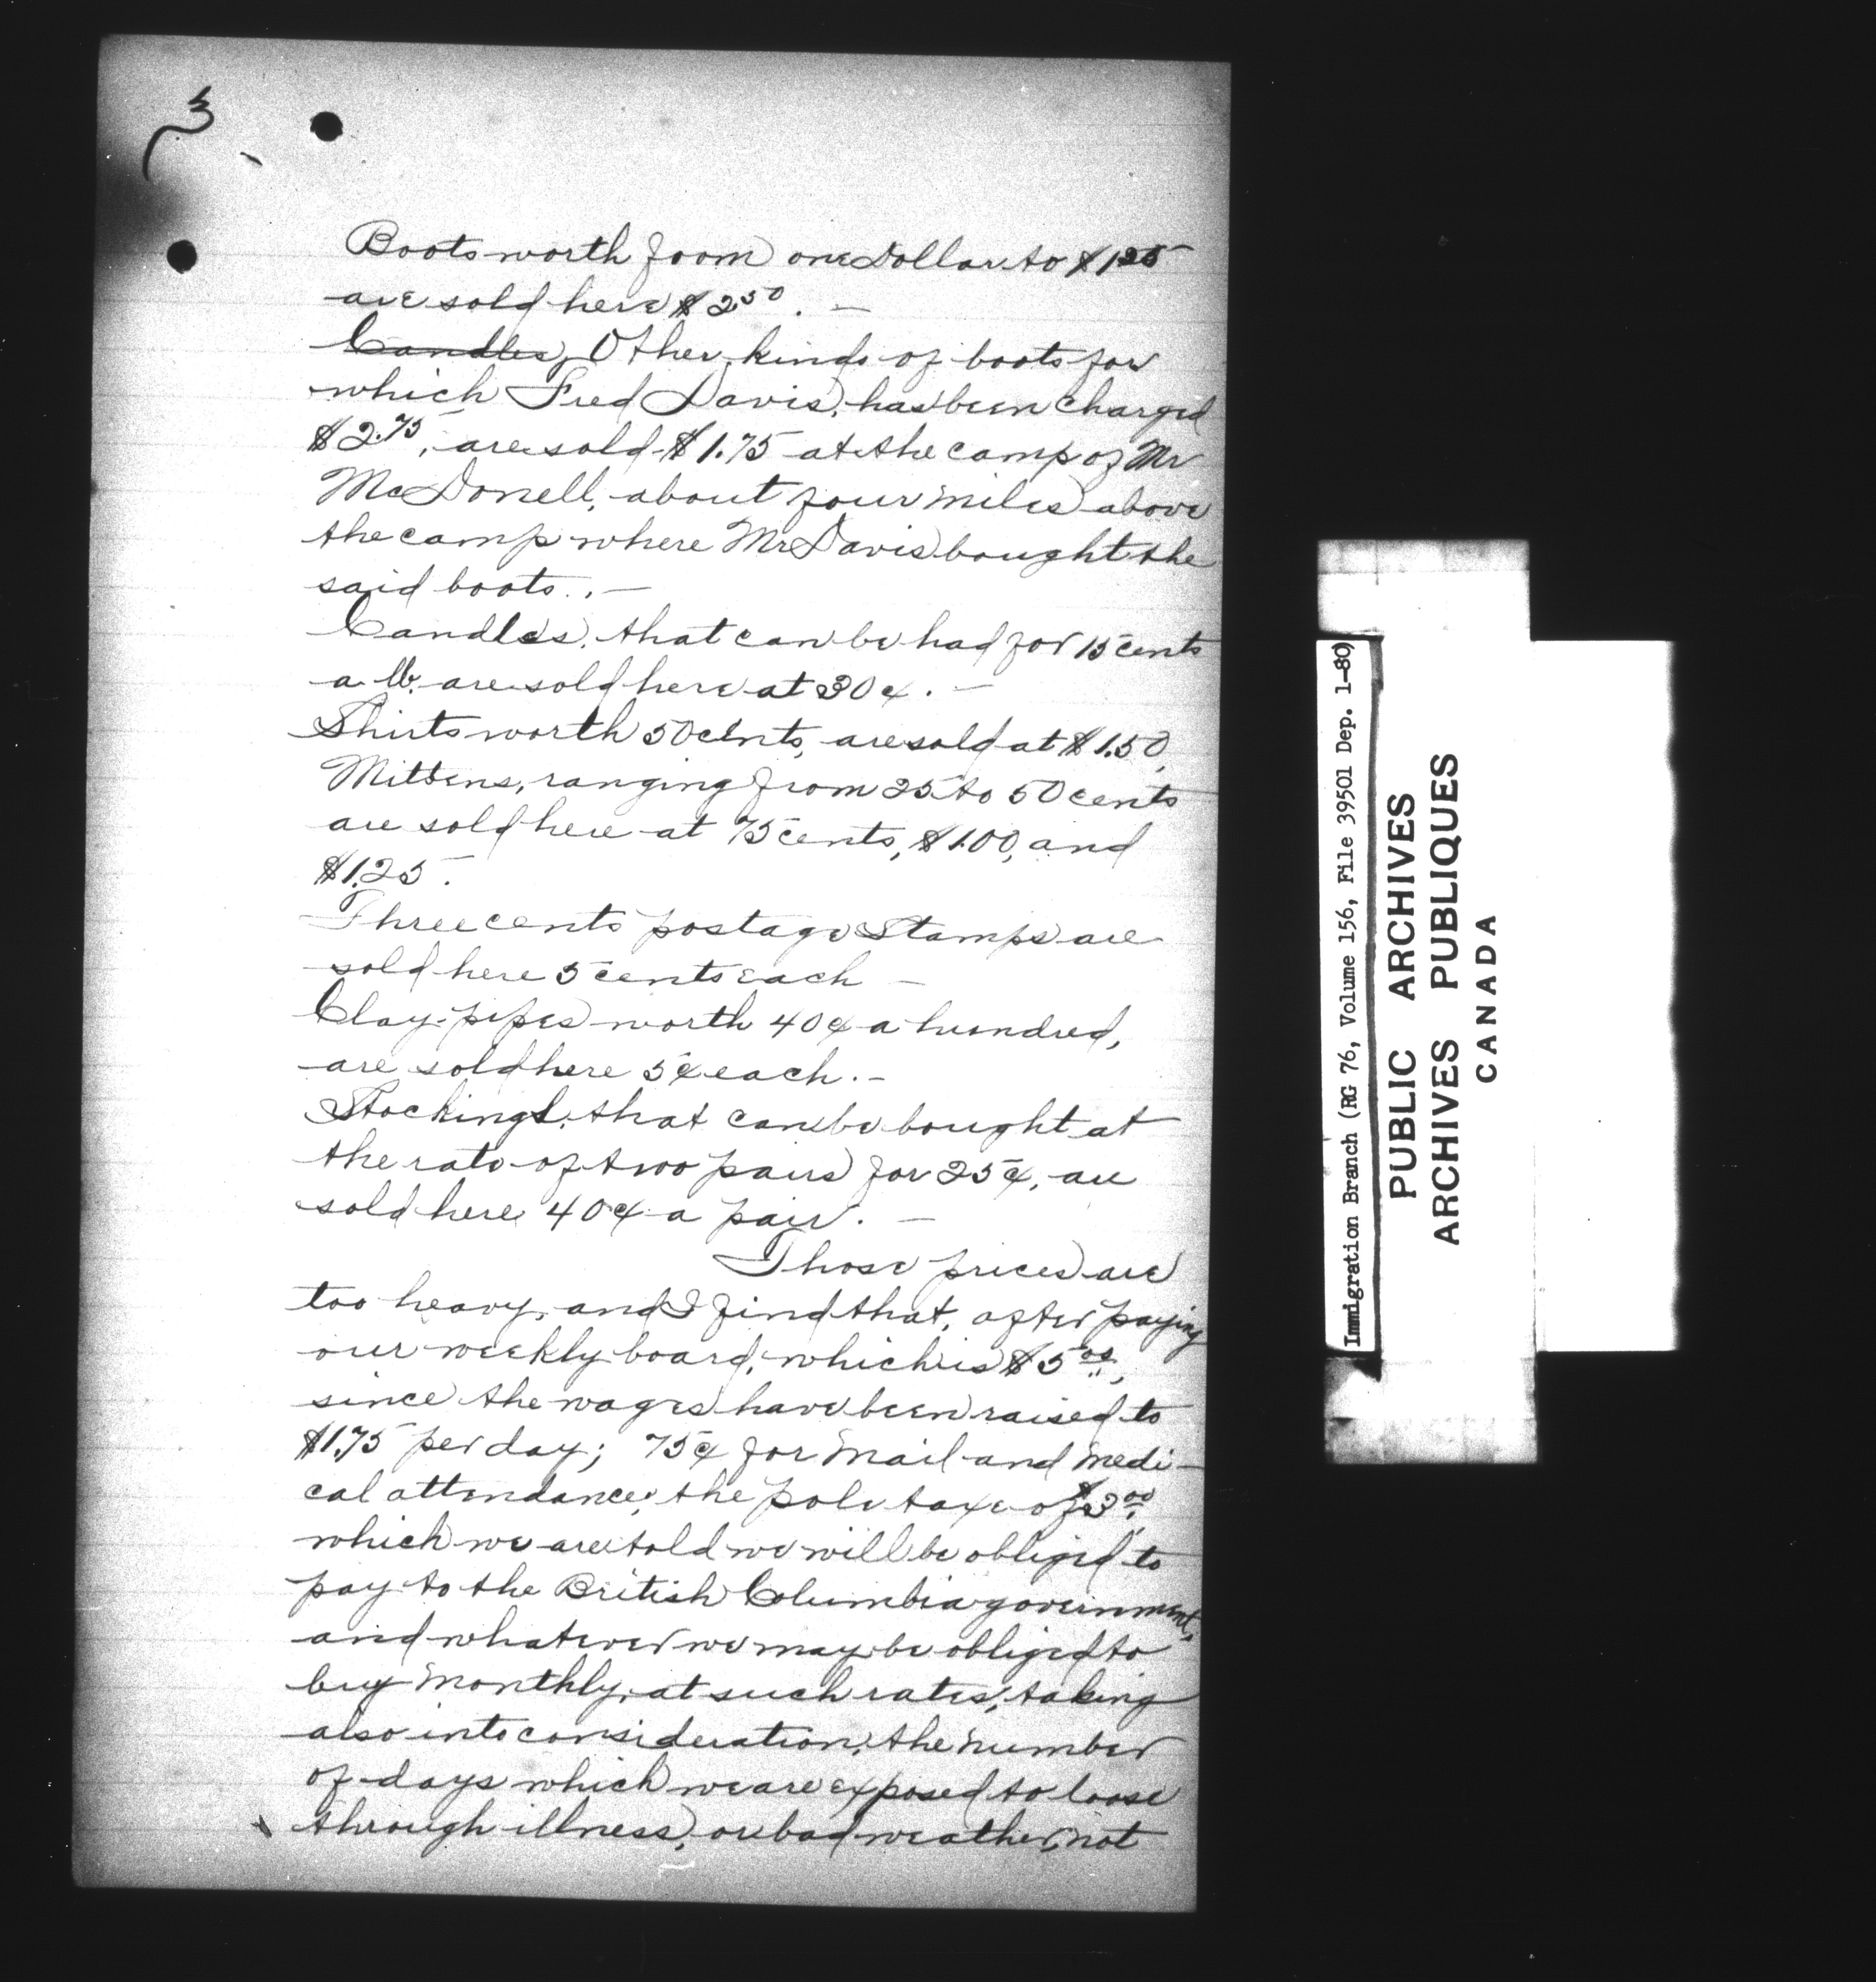 3
Boots worth from one Dollar to $1.25
are sold here $2.50. —
Candles, Other kinds of boots for
which Fred Davis, has been charged
$2.75, are sold $1.75 at the camp of Mr
McDonell, about four miles above
the camp where Mr Davis bought the
said boots. . —
Candles, that can be had for 15 cents
a lb. are sold here at 30¢. —
Shirts worth 50 cents, are sold at $1.50,
Mittens, ranging from 25 to 50 cents
are sold here at 75 cents, $1.00, and
$1.25.
Three cents postage Stamps are
sold here 5 cents each —
Clay pipes worth 40¢ a hundred,
are sold here 5¢ each. —
Stockings, that can be bought at
the rate of two pairs for 25¢, are
sold here 40¢ a pair. —
Those prices are
too heavy, and I find that, after paying
our weekly board, which is $5.00,
since the wages have been raised to
$1.75 per day; 75¢ for mail and medi-
cal attendance; the pole taxe of $3.00,
which we are told we will be obliged to
pay to the British Columbia government,
and whatever we may be obliged to
buy monthly, at such rates, taking
also into consideration, the number
of days which we are exposed to loose
through illness, or bad weather, not
Immigration Branch (RG 76, Volume 156, File 39501 Dep. 1-80)
PUBLIC ARCHIVES
ARCHIVES PUBLIQUES
CANADA